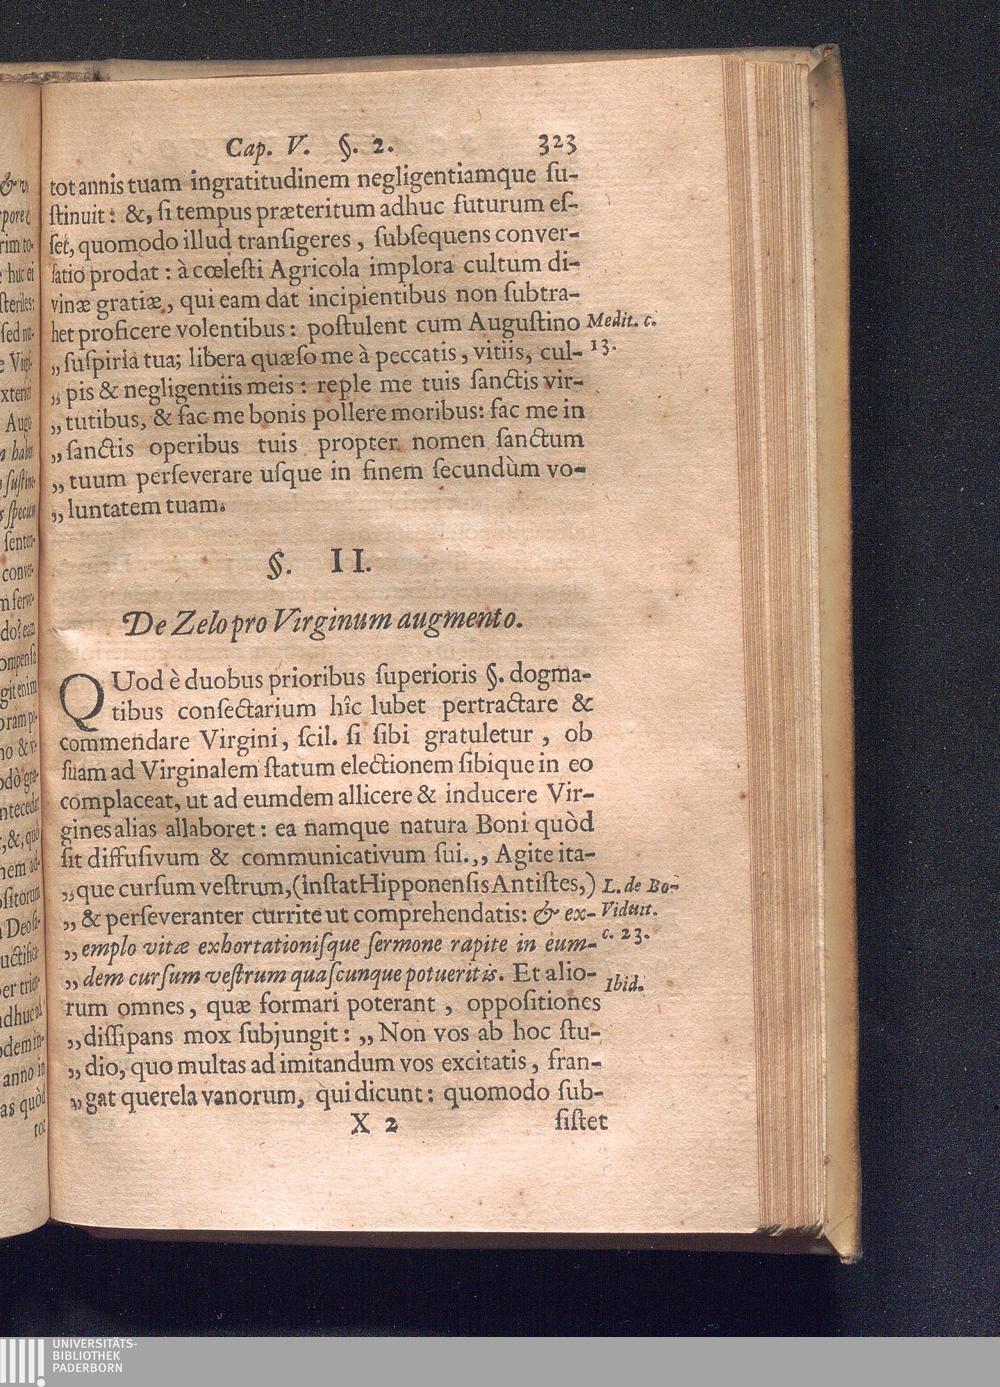 Cap. V. §. 2. 323
tot annis tuam ingratitudinem negligentiamque ſu-
ſtinuit: &, ſi tempus præteritum adhuc futurum eſ-
ſet, quomodo illud tranſigeres, ſubſequens conver-
ſatio prodat: à cœleſti Agricola implora cultum di-
vinæ gratiæ, qui eam dat incipientibus non ſubtra-
het proficere volentibus: poſtulent cum Auguſtino Medit. c.
„ ſuſpiria tua; libera quæſo me à peccatis, vitiis, cul- 13.
„ pis & negligentiis meis: reple me tuis ſanctis vir-
„ tutibus, & fac me bonis pollere moribus: fac me in
„ ſanctis operibus tuis propter nomen ſanctum
„ tuum perſeverare uſque in finem ſecundùm vo-
„ luntatem tuam.
§. II.
De Zelo pro Virginum augmento.
QUod è duobus prioribus ſuperioris §. dogma-
tibus conſectarium hîc lubet pertractare &
commendare Virgini, ſcil. ſi ſibi gratuletur, ob
ſuam ad Virginalem ſtatum electionem ſibique in eo
complaceat, ut ad eumdem allicere & inducere Vir-
gines alias allaboret: ea namque natura Boni quòd
ſit diffuſivum & communicativum ſui. „ Agite ita-
„ que curſum veſtrum, (inſtat Hipponenſis Antiſtes,) L. de Bo-
„ & perſeveranter currite ut comprehendatis: & ex- Viduit.
„ emplo vitæ exhortationiſque ſermone rapite in eum- c. 23.
„ dem curſum veſtrum quaſcunque potueritis. Et alio- Ibid.
rum omnes, quæ formari poterant, oppoſitiones
„ diſſipans mox ſubjungit: „ Non vos ab hoc ſtu-
„ dio, quo multas ad imitandum vos excitatis, fran-
„ gat querela vanorum, qui dicunt: quomodo ſub-
X 2 ſiſtet
UNIVERSITÄTS-
BIBLIOTHEK
PADERBORN